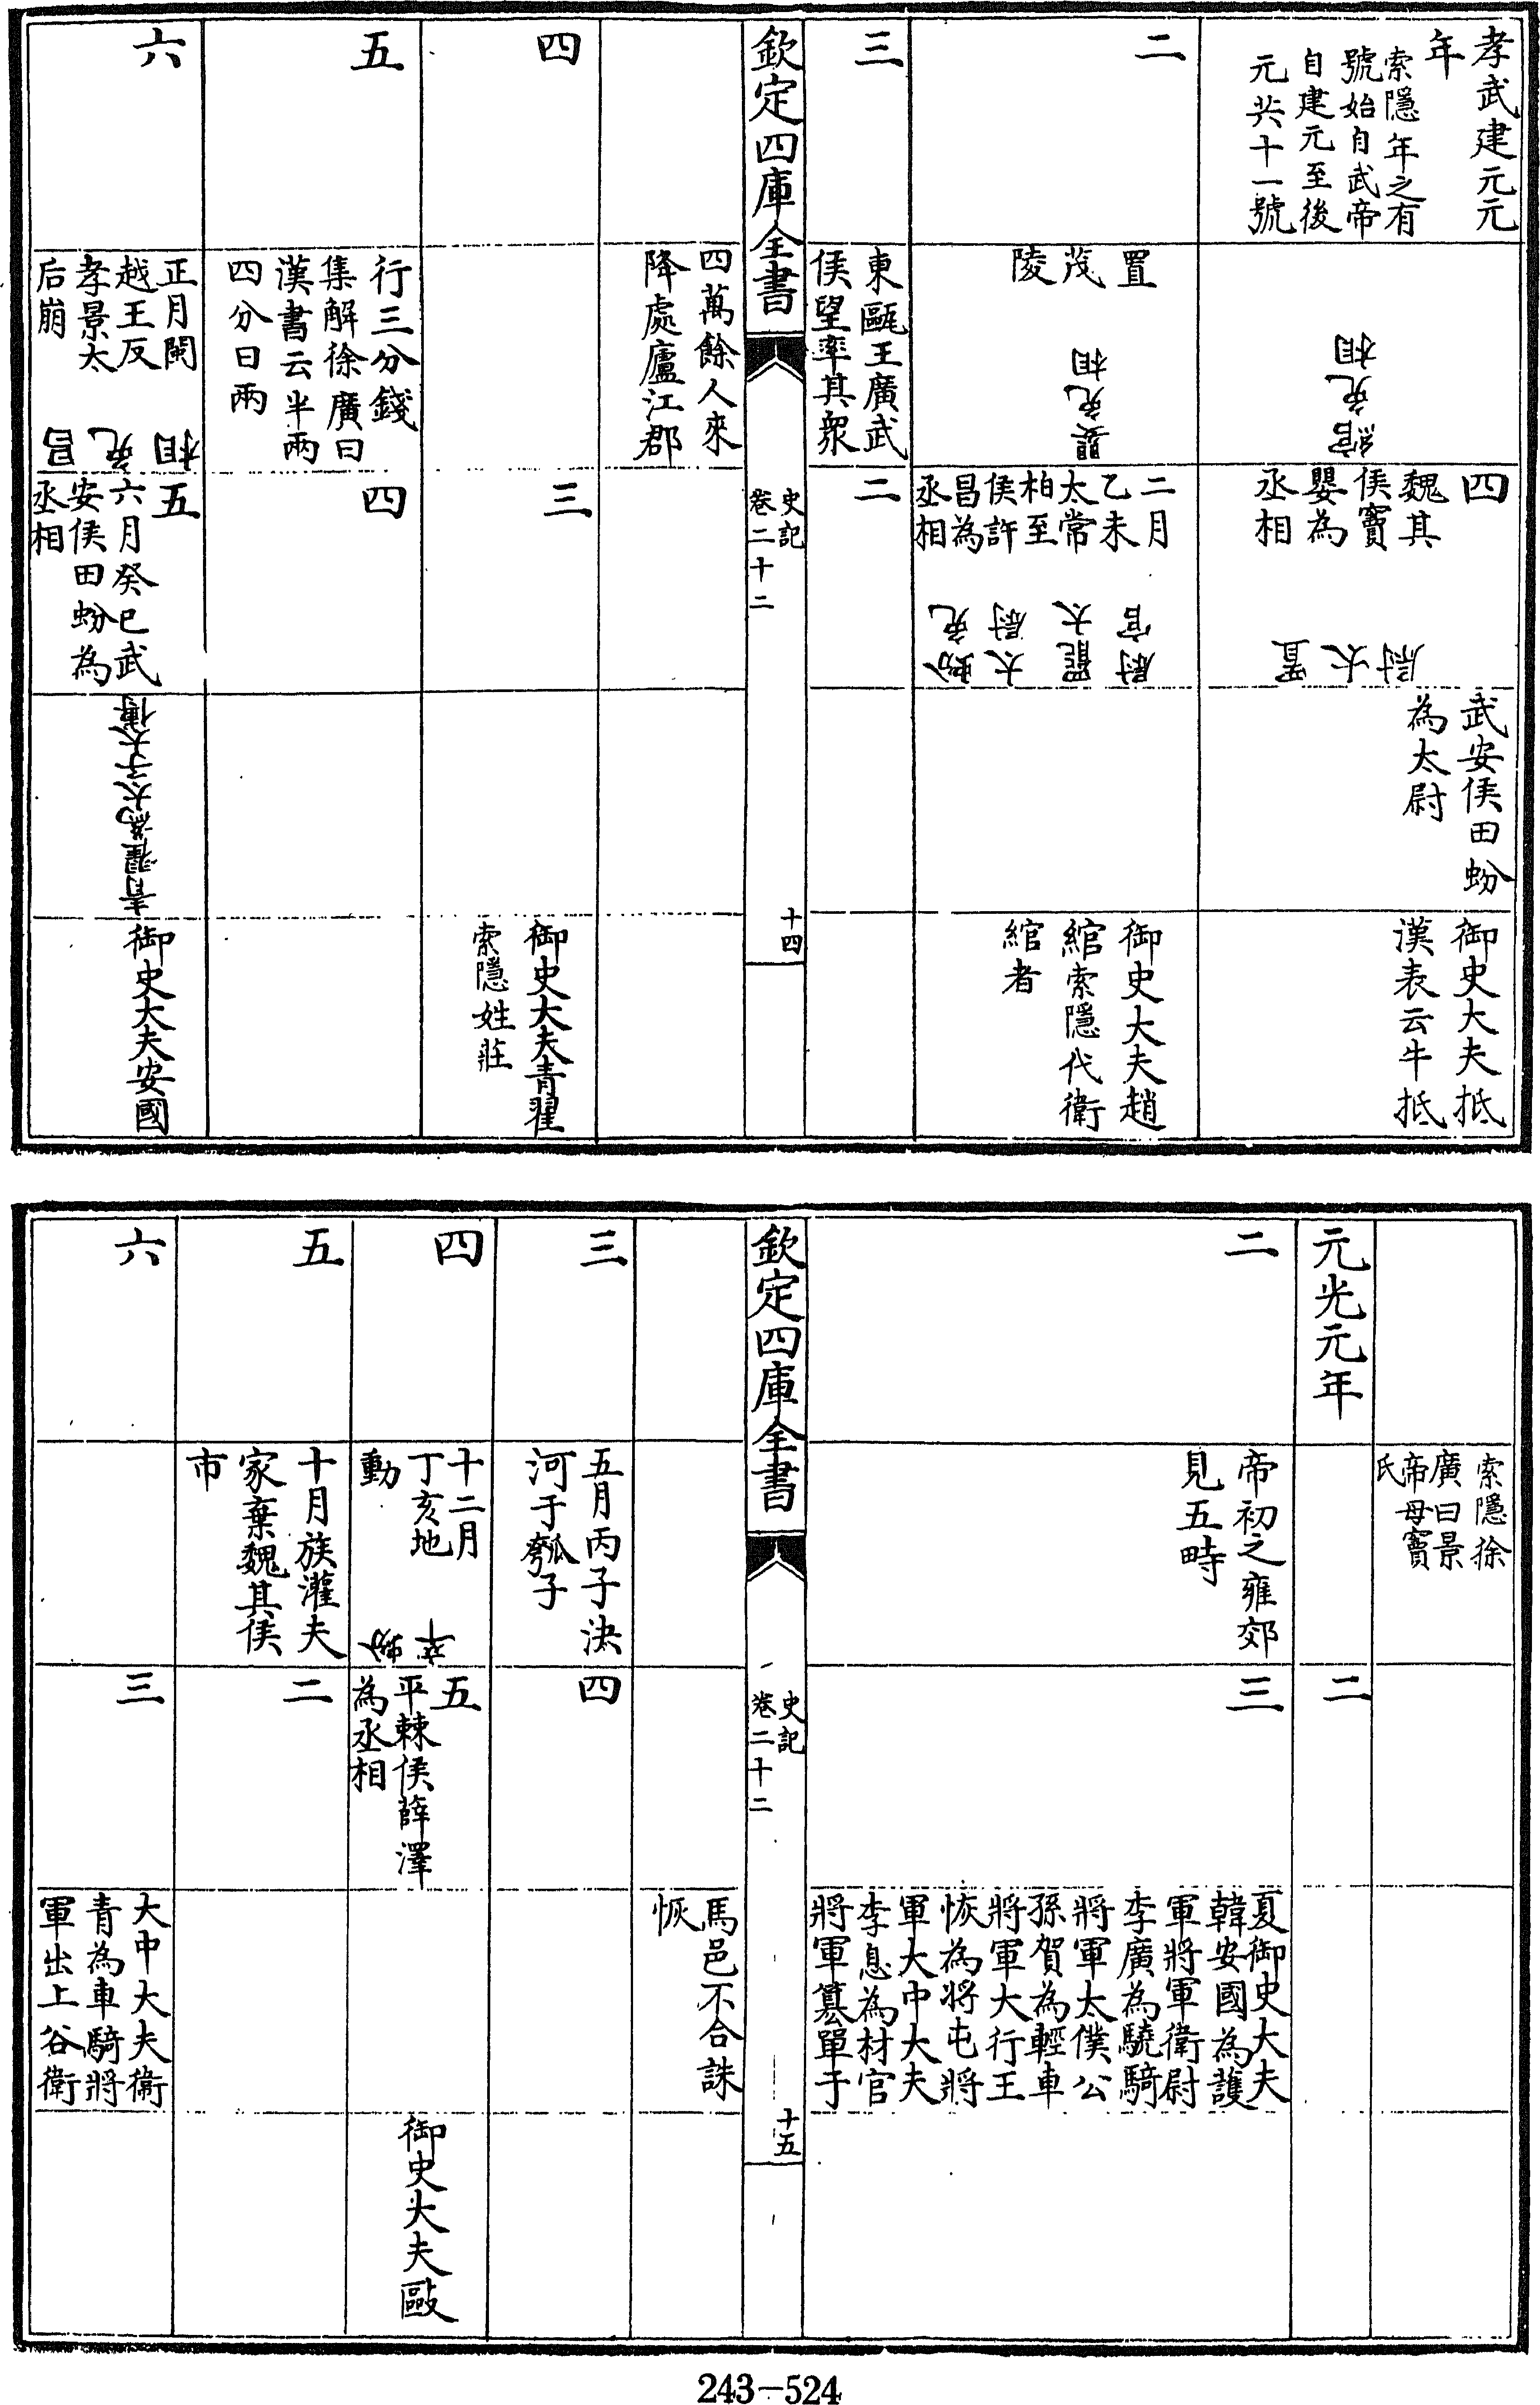 孝武建元元
年
索隱年之有
號始自武帝
自建元至後
元共十一號
綰免相
四
魏其
侯竇
嬰為
丞相
置太尉
武安侯田蚡
為太尉
御史大夫抵
漢表云牛抵
二
置
茂
陵
嬰免相
二月
乙未
太常
柏至
侯許
昌為
丞相
蚡免
太尉
罷太
尉官
御史大夫趙
綰索隱代衛
綰者
三
東甌王廣武
侯望率其衆
二
欽定四庫全書
史記
卷二十二
十四
四萬餘人來
降處廬江郡
四
三
御史大夫青翟
索隱姓莊
五
行三分錢
集解徐廣曰
漢書云半兩
四分曰兩
四
六
正月閩
越王反
孝景太
后崩
昌免相
五
六月癸巳武
安侯田蚡為
丞相
青翟為太子太傅
御史大夫安國
索隱徐
廣曰景
帝母竇
氏
元光元年
二
二
帝初之雍郊
見五畤
三
夏御史大夫
韓安國為護
軍將軍衛尉
李廣為驍騎
將軍太僕公
孫賀為輕車
將軍大行王
恢為將屯將
軍大中大夫
李息為材官
將軍篡單于
欽定四庫全書
史記
卷二十二
十五
馬邑不合誅
恢
三
五月丙子決
河于瓠子
四
四
十二月
丁亥地
動
蚡卒
五
平棘侯薛澤
為丞相
御史大夫歐
五
十月族灌夫
家棄魏其侯
市
二
六
三
大中大夫衛
青為車騎將
軍出上谷衛
243—524